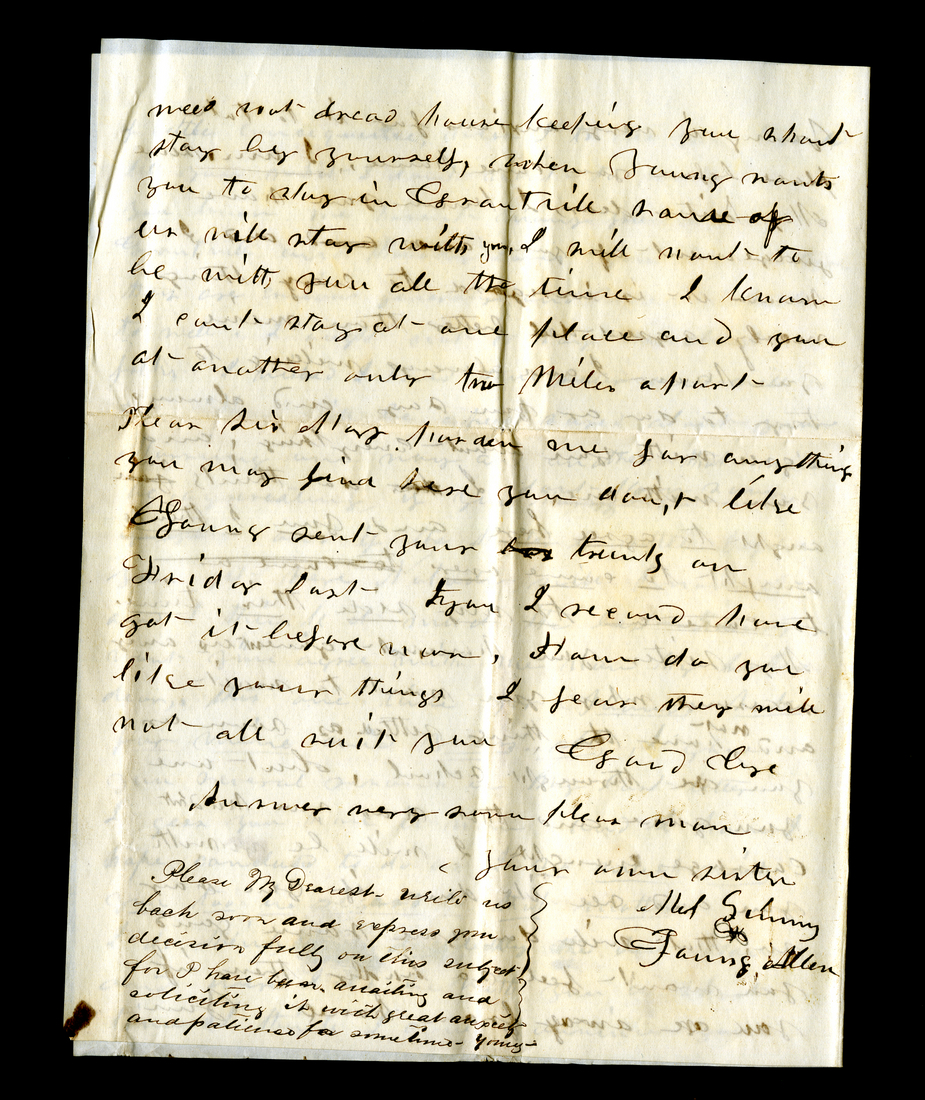 need not dread house keeping you shant
stay by yourself, when Young wants
you to stay in Grantvill some of
us will stay with you, I will want to
be with you all the time I know
I cant stay at one place and you
at another only two Miles apart
Pleas Sis Mary pardon me for anything
you may find here you don,t like
Young sent your trunk on
Friday last you I reccond have
got it before now, How do you
like your things I fear they will
not all suit you Good bye
Answer very soon pleas mam
your own sister
Young Allen
Please My Dearest write us
back soon and express your
decision fully on this subject
for I have been awaiting and
soliciting it with great anxiety
and patience for sometime Young